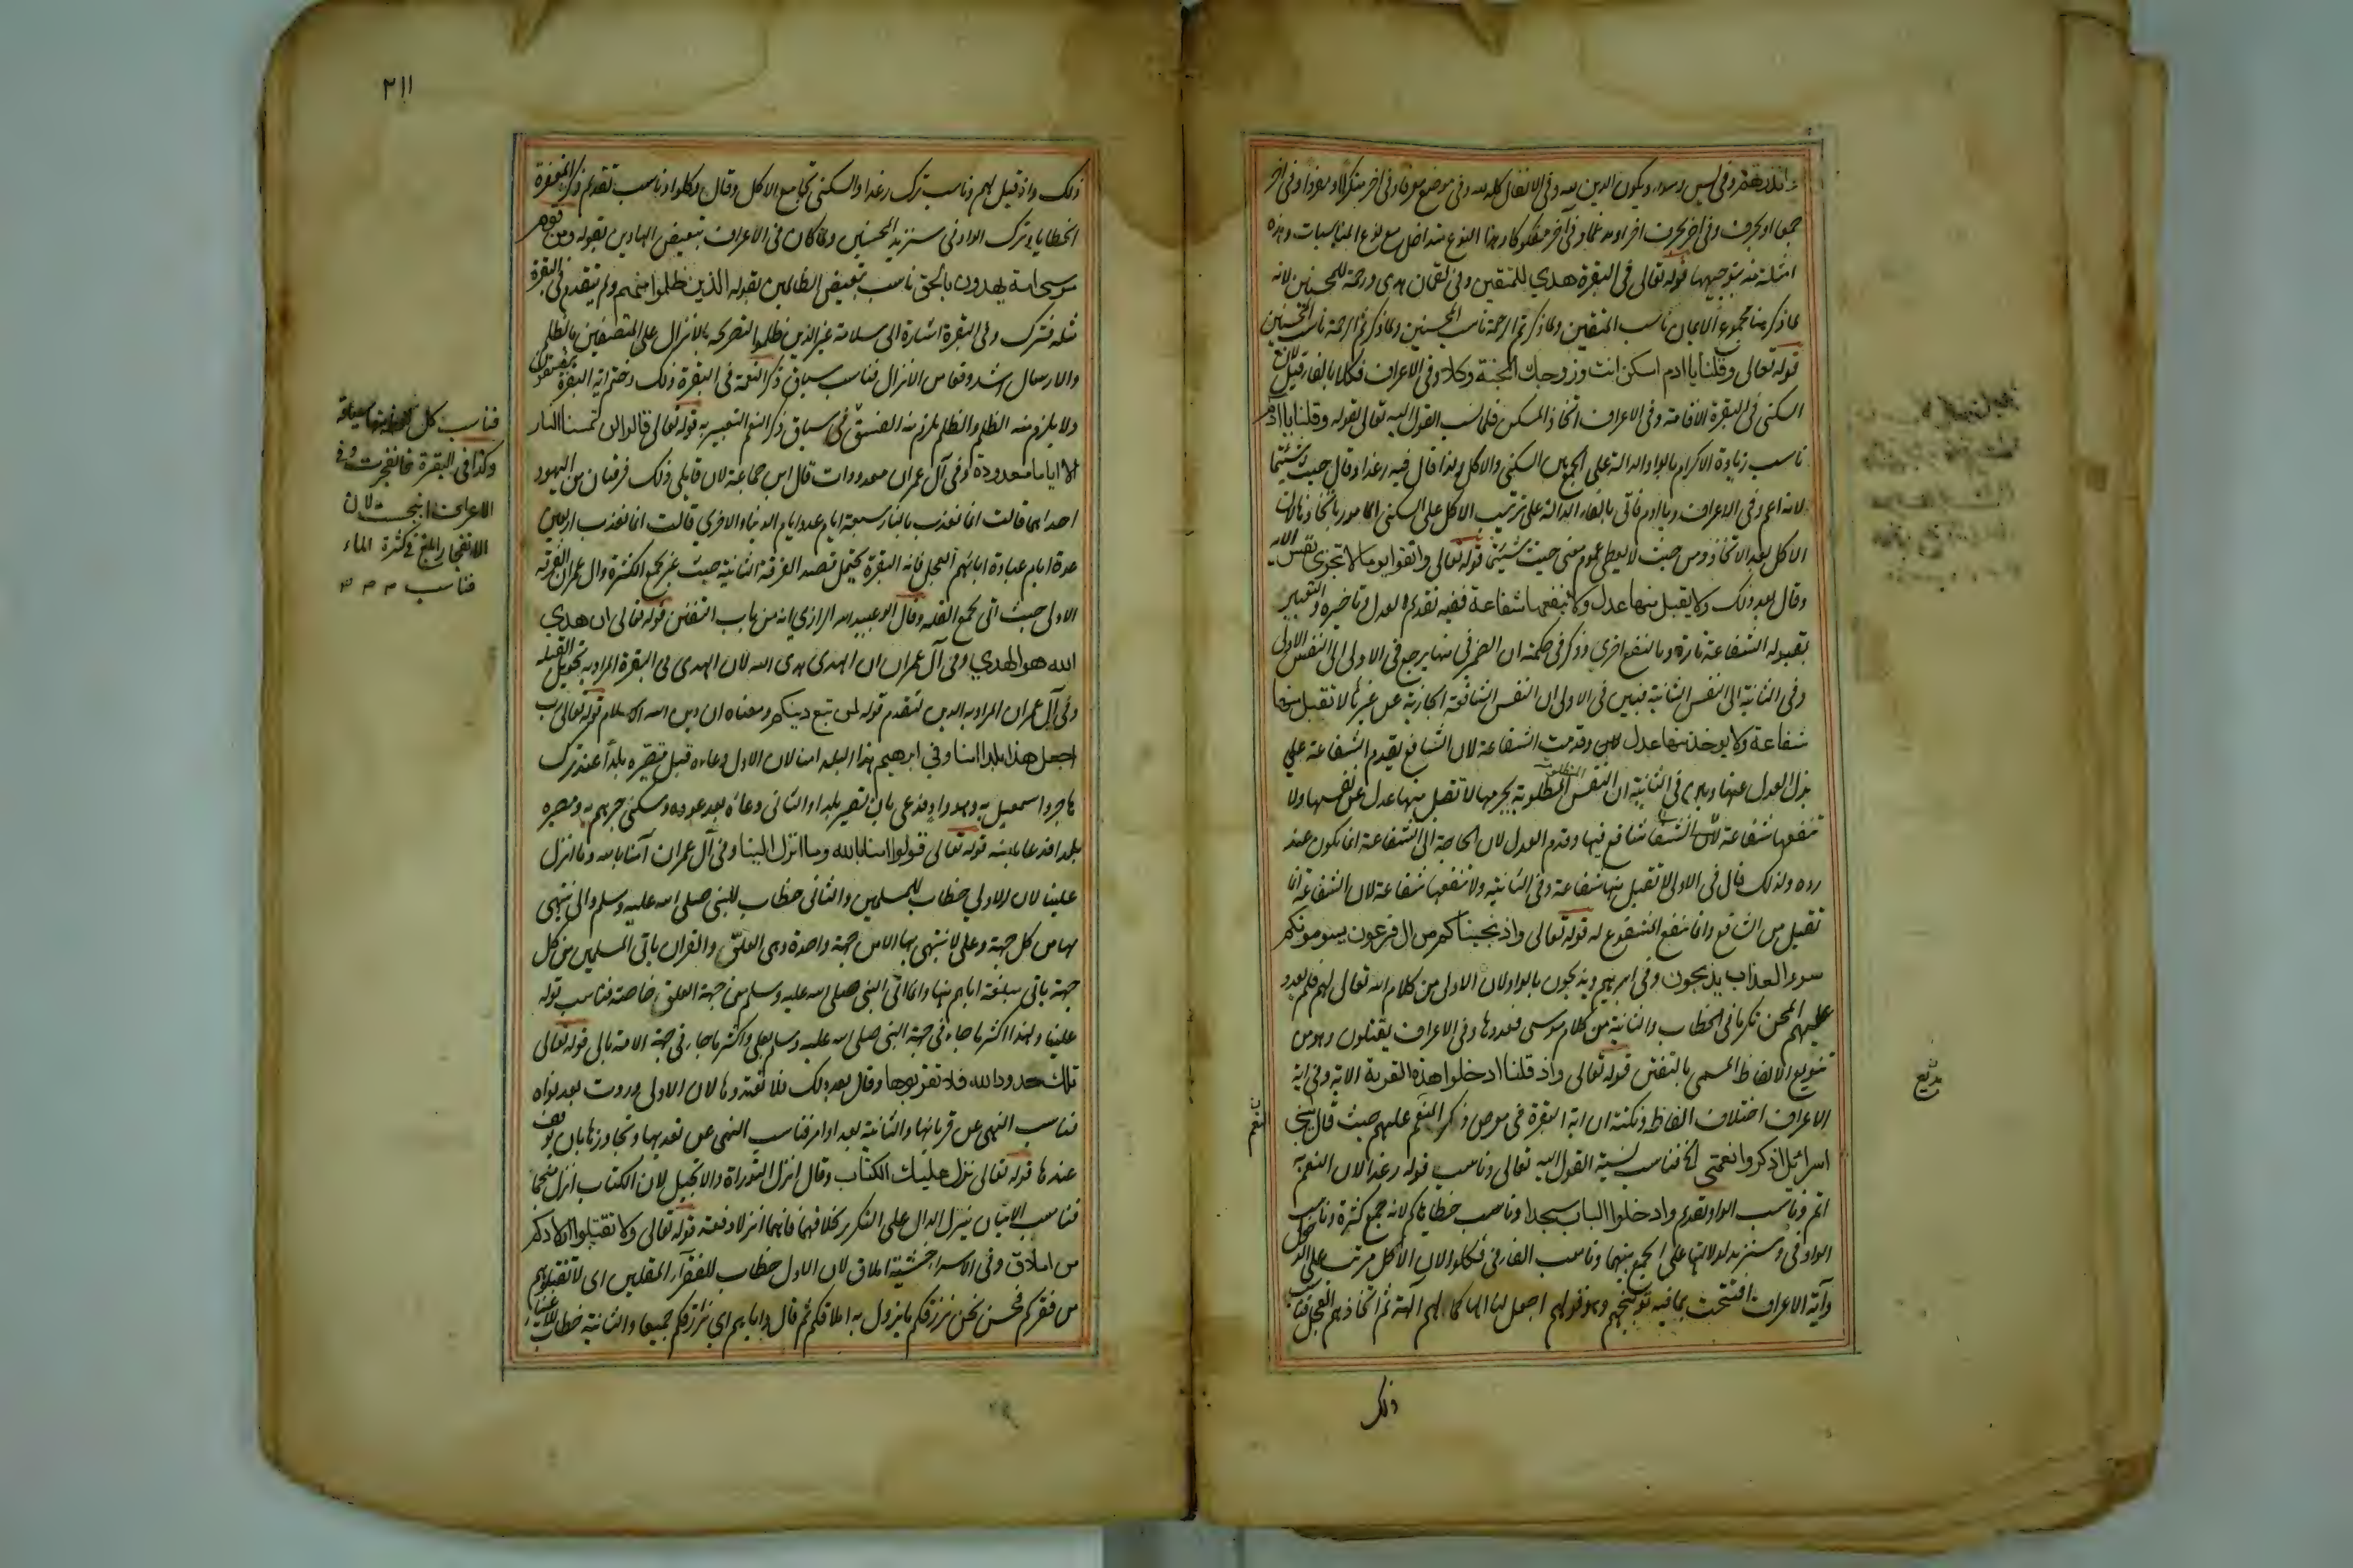 وفي يس وسواء ويكون الدين لله وفي الانفال كله لله وفي موضع معرفا وفي اخر منكرا او مفردا وفي اخر
جمعا او بحرف وفي اخر بحرف اخر او مدغما وفي آخر مفكوكا وهذا النوع يتداخل مع نوع المناسبات وهذه
امثلة منه بتوجيهها قوله تعالى في البقرة هدي للمتقين وفي لقمان هدى ورحمة للمحسنين لانه
لما ذكر هنا مجموع الايمان ناسب المتقين ولما ذكر ثم الرحمة ناسب المحسنين ولما ذكر ثم الرحمة ناسب المحسنين
قوله تعالى وقلنا يا ادم اسكن انت وزوجك الجنة وكلا وفي الاعراف فكلا بالفاء قيل لان
السكنى في البقرة الاقامة وفي الاعراف اتخاذ المسكن فلما نسب القول اليه تعالى بقوله وقلنا يا ادم
ناسب زيادة الاكرام بالواو الدالة على الجمع بين السكنى والاكل ولذا قال فيه رغدا وقال حيث شئتما
لانه اعم وفي الاعراف ويا ادم فاتى بالفاء الدالة على ترتيب الاكل على السكنى المامور باتخاذها لان
الاكل بعد الاتخاذ ومن حيث لا يعطي عموم معنى حيث شئتما قوله تعالى واتقوا يوما لا تجزى نفس الاية
وقال بعد ذلك ولا يقبل منها عدل ولا تنفعها شفاعة ففيه تقديم العدل وتاخيره والتعبير
بقبول الشفاعة تارة وبالنفع اخرى وذكر في حكمته ان الضمير في منها يرجع في الاولى الى النفس الاولى
وفي الثانية الى النفس الثانية فبين في الاولى ان النفس الشافعة الجازية عن غيرها لا تقبل منها
شفاعة ولا يوخذ منها عدل وقدمت الشفاعة لان الشافع يقدم الشفاعة على
بذل العدل عنها وبين في الثانية ان النفس المطلوبة بجرمها لا تقبل منها عدل عن نفسها ولا
تنفعها شفاعة شافع فيها وقدم العدل لان الحاجة الى الشفاعة انما يكون عند
رده ولذلك قال في الاولى لا تقبل منها شفاعة وفي الثانية ولا تنفعها شفاعة لان الشفاعة انما
تقبل من الشافع وانما تنفع المشفوع له قوله تعالى واذ نجيناكم من ال فرعون يسومونكم
سوء العذاب يذبحون وفي ابرهيم ويذبحون بالواو لان الاولى من كلام الله تعالى لهم فلم يعدد
عليهم المحن تكرما في الخطاب والثانية من كلام موسى فعددها وفي الاعراف يقتلون وهو من
تنويع الالفاظ المسمى بالتفنن قوله تعالى واذ قلنا ادخلوا هذه القرية الاية وفي اية
الاعراف اختلاف الفاظ ونكتة ان اية البقرة في معرض ذكر النعم عليهم حيث قال يا بني
اسرائيل اذكروا نعمتي الخ فناسب نسبة القول اليه تعالى وناسب قوله رغدا لان النعم به
اتم وناسب الواو تقديم وادخلوا الباب سجدا وناسب خطاياكم لانه جمع كثرة وناسب
الواو في وسنزيد لدلالتها على الجمع بينهما وناسب الفاء في فكلوا لان الاكل مرتب على الدخول
وآية الاعراف افتتحت بما فيه توبيخهم وهو قولهم اجعل لنا الها كما لهم آلهة ثم اتخاذهم العجل فناسب
بديع
نعم
ذلك
٢١١
ذلك واذ قيل لهم وناسب ترك رغدا والسكنى تجامع الاكل وقال وكلوا وناسب تقديم ذكر المغفرة
الخطايا وترك الواو في سنزيد المحسنين ولما كان في الاعراف تبعيض الهادين بقوله ومن قوم
موسى امة يهدون بالحق ناسب تبعيض الظالمين بقوله الذين ظلموا منهم ولم يتقدم في البقرة
مثله فترك وفي البقرة اشارة الى سلامة غير الذين ظلموا لتصريحه بالانزال على المتصفين بالظلم
والارسال اشد وقعا من الانزال فناسب سياق ذكر النعمة في البقرة ذلك وختم اية البقرة بيفسقون
ولا يلزم منه الظلم والظلم يلزم منه الفسق في سياق ذكر النعم التعبير به قوله تعالى قالوا لن تمسنا النار
الا اياما معدودة وفي آل عمران معدودات قال ابن جماعة لان قايلي ذلك فرقتان من اليهود
احداهما قالت انما نعذب بالنار سبعة ايام عدد ايام الدنيا والاخرى قالت انما نعذب اربعين
عدة ايام عبادة ابائهم العجل فاية البقرة تحتمل قصد الفرقة الثانية حيث عبر بجمع الكثرة وال عمران الفرقة
الاولى حيث اتى بجمع القلة وقال ابو عبيد الله الرازي انه من باب التفنن قوله تعالى ان هدي
الله هو الهدي وفي آل عمران ان الهدى هدى الله لان الهدى في البقرة المراد به تحويل القبلة
وفي آل عمران المراد به الدين لتقدم قوله لمن تبع دينكم ومعناه ان دين الله الاسلام قوله تعالى رب
اجعل هذا بلدا امنا وفي ابرهيم هذا البلد امنا لان الاول دعاء قبل تصيره بلدا عند ترك
هاجر واسمعيل به وهو واد فدعى بان تصير بلدا والثاني دعائه بعد عوده وسكنى جرهم به ومصيره
بلدا فدعا بامنه قوله تعالى قولوا امنا بالله وما انزل الينا وفي آل عمران آمنا بالله وما انزل
علينا لان الاولى خطاب للمسلمين والثاني خطاب للنبي صلى الله عليه وسلم والى ينتهى
بها من كل جهة وعلى لا ينتهي بها الا من جهة واحدة وهى العلو والقران ياتى المسلمين من كل
جهة ياتى مبلغه اياهم منها وانما اتى النبي صلى الله عليه وسلم من جهة العلو خاصة فناسب قوله
علينا ولهذا اكثر ما جاء في جهة النبي صلى الله عليه وسلم بعلى واكثر ما جاء في جهة الامة بالى قوله تعالى
تلك حدود الله فلا تقربوها وقال بعد ذلك فلا تعتدوها لان الاولى وردت بعد نواه
فناسب النهي عن قربانها والثانية بعد اوامر فناسب النهي عن تعديها وتجاوزها بان يوقف
عندها قوله تعالى نزل عليك الكتاب وقال انزل التوراة والانجيل لان الكتاب انزل منجما
فناسب الاتيان بنزل الدال على التكرير بخلافهما فانهما انزلا دفعة قوله تعالى ولا تقتلوا اولادكم
من املاق وفي الاسراء خشية املاق لان الاول خطاب للفقراء المقلين اى لا تقتلوهم
من فقركم فحسن نحن نرزقكم ما يزول به املاقكم ثم قال واياهم اى نرزقكم جميعا والثانية خطاب للاغنياء
فناسب كل
وكذا في البقرة فانفجرت وفي
الاعراف انبجست لان
الانفجار ابلغ في كثرة الماء
فناسب